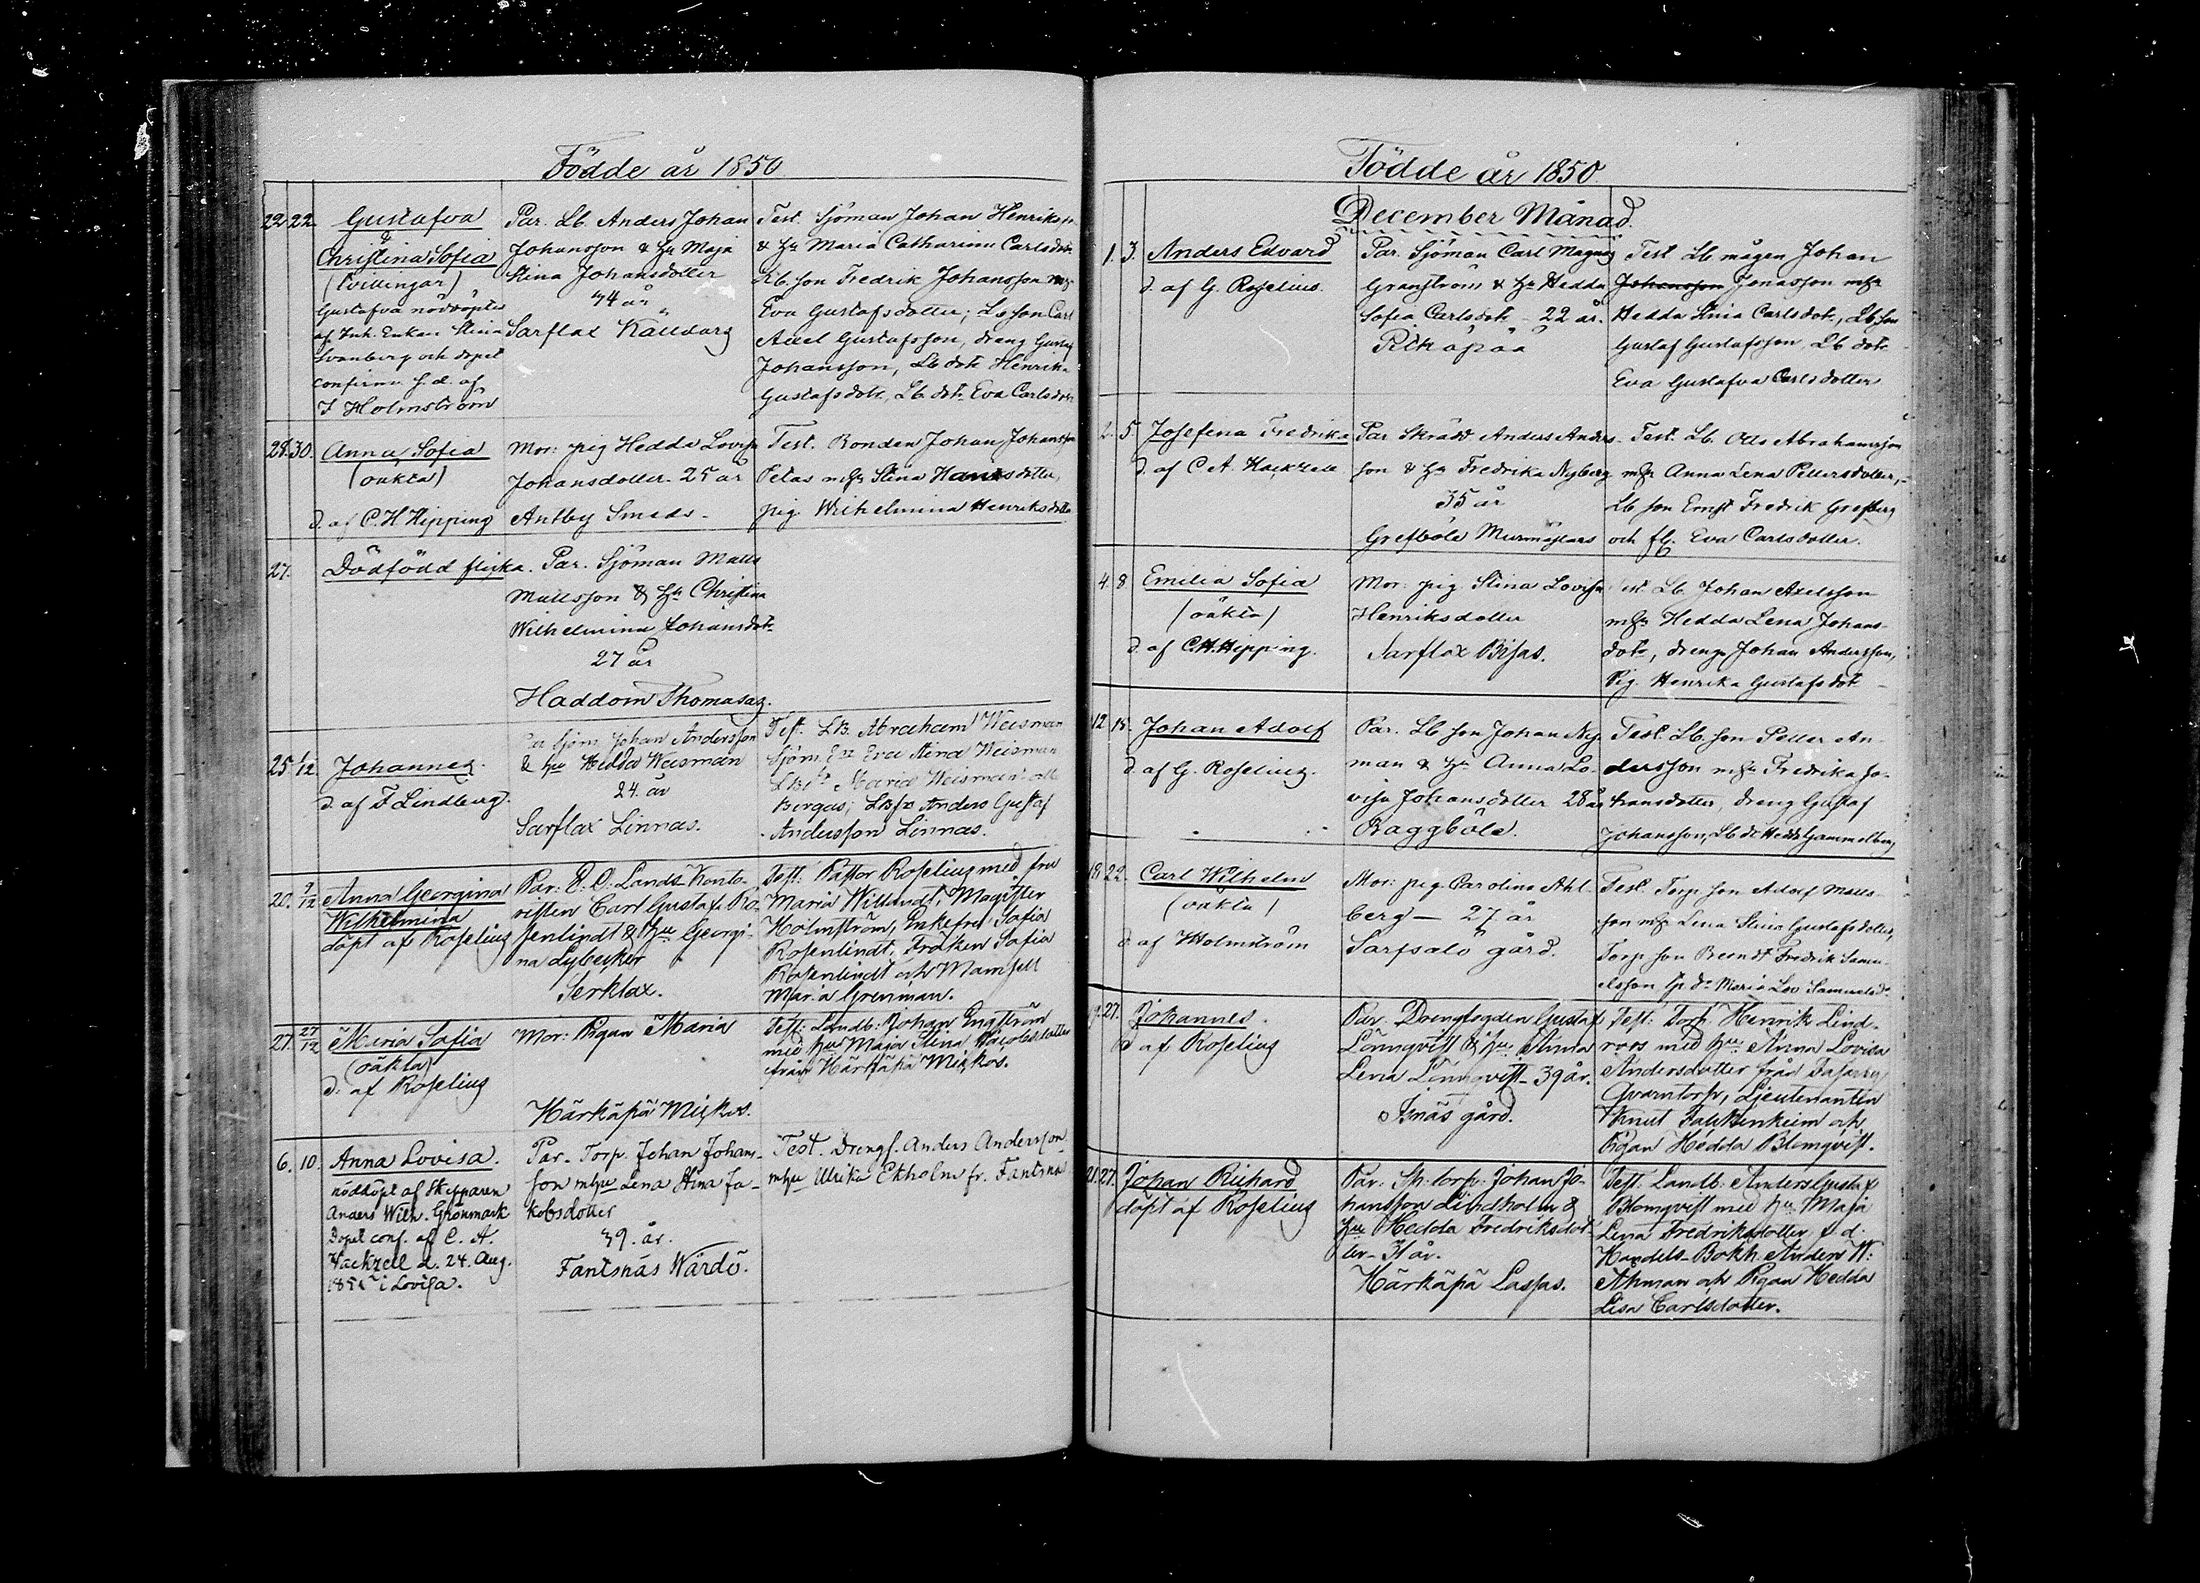 Födde år 1850
22. 22. Gustafva
&
Christina Sofia
(tvillingar)
Gustafva nöddöptes
af Inh. Enkan Stina
Svanberg och dopet
confirm. s. d. af
I Holmström
Par. Lb. Anders Johan
Johansson & Hu Maja
Stina Johansdotter
44 år
Sarflax Källdarg
Test. Sjöman Johan Henriksn
& Hu Maria Catharina Carlsdotr
Lb. son Fredrik Johansson
Eva Gustafsdotter; Lb son Carl
Axel Gustafsson, dreng Gustaf
Johansson, Lb dotr Henrika
Gustafsdotr, Lb dotr Eva Carlsdotr
28. 30. Anna Sofia
(oäkta)
d. af C. H Hipping
Mor: pig Hedda Lovisa
Johansdotter 25 år
Antby Smeds
Test. Bonden Johan Johansson
Petas mhu Stina Hansdotter,
pig. Wilhelmina Henriksdotter
27. Dödfödd flicka.
Par. Sjöman Matts
Mattsson & Hu Christina
Wilhelmina Johansdotr
27 år
Haddom Thomasas.
25 1/12 Johannes.
d. af F Lindberg.
Sjöm Johan Andersson
& hu Hedda Weisman
24. år
Sarflax Linnas.
Test. LB. Abraham Weisman
Sjöm. Eva Stina Weisman
Maria Weisman
Bergas; LBs Anders Gustaf
Andersson Linnas.
20. 9/12 Anna Georgina
Wilhelmina
döpt af Roselius
Par: E. O. Lands-Konto-
risten Carl Gustaf Ro-
senlindt & hu Georgi-
na dybecker
Serklax.
Test: Pastor Roselius med fru
Maria Willandt, Magister
Holmström, Enkefru Sofia
Rosenlindt, Fröken Sofia
Rosenlindt och Mamsell
Maria Grenman.
27. 27/12 Maria Sofia
(oäkta)
d. af Roselius
Mor: Pigan Maria
Härkäpä Mickos.
Test: Landb: Johan Engström
med hu Maja Stina Jacobsdotter
från Härkäpä Mickos.
6. 10. Anna Lovisa.
nöddöpt af Skepparen
Anders Wilh. Grönmark
Dopet conf. af C. A.
Hackzell d. 24. Aug.
i Lovisa.
Par. Torp. Johan Johans-
son mhu Lena Stina Ja-
kobsdotter
39. år.
Fantsnäs Wårdö.
Test. Drengs. Anders Andersson
mhu Ulrika Ekholm fr. Fantsnäs
Födde år 1850.
December Månad.
1. 3. Anders Edvard
d. af G. Roselius.
Par. Sjöman Carl Magnus
Granström & Hu Hedda
Sofia Carlsdotr - 22 år.
Pitkäpää
Test. Lb mågen Johan
Johansson Jonasson mhu
Hedda Stina Carlsdotr, Lb son
Gustaf Gustafsson, Lb dotr
Eva Gustafva Carlsdotter
2. 5. Josefina Fredrika
d. af C. A. Hackzell
Par Skrädd Anders Anders-
son & Hu Fredrika Nyberg
35 år
Grefböle Murmästars
Test. Lb. Otto Abrahamsson
mhu Anna Lena Pettersdotter,
Lb son Ernst Fredrik Grefberg
och fl. Eva Carlsdotter.
4. 8 Emilia Sofia
(oäkta)
d. af C. H. Hipping.
Mor: pig Stina Lovisa
Henriksdotter
Sarflax Bisas.
Test. Lb. Johan Axelsson
mhu Hedda Lena Johans-
dotr, dreng Johan Andersson,
Pig. Henrika Gustafsdotr
12 15. Johan Adolf
d. af G. Roselius.
Par. Lb son Johan Ny-
man & Hu Anna Lo-
visa Johansdotter 28 år
Baggböle.
Test. Lb. son Petter An-
dersson mhu Fredrika Jo-
hansdotter, dreng Gustaf
Johansson, Lb dr Hedda Gammelberg
19. 22. Carl Wilhelm
(oäkta)
d af Holmström
Mor: pig Carolina Ahl-
berg - 27 år
Sarfsalö gård.
Test. Torp son Adolf Matts-
son mhu Lena Stina Gustafsdotter,
Torp son Berndt Fredrik Samu-
elsson tp dr Maria Lov Samuelsdr
27. Johannes.
d af Roselius
Par. Drengfogden Gustaf
Lönnqvist & hu Anna
Lena Lönnqvist - 39 år.
Isnäs gård.
Test: Torp. Henrik Lind-
roos med hu Anna Lovisa
Andersdotter från Tasarby
Qvarntorp, Ljeutenanten
Knut Falkkenheim och
Pigan Hedda Blomqvist.
21. 27. Johan Richard
döpt af Roselius
Par: Sk: torp: Johan Jo-
hansson Lindholm &
hu Hedda Fredriksdot-
ter - 31 år.
Härkäpä Lassas.
Test: Landb. Anders Gustaf
Blomqvist med hu Maja
Lena Fredriksdotter s. d.
Handels-Bokh. Anders W:
Åhman och Pigan Hedda
Lisa Carlsdotter.